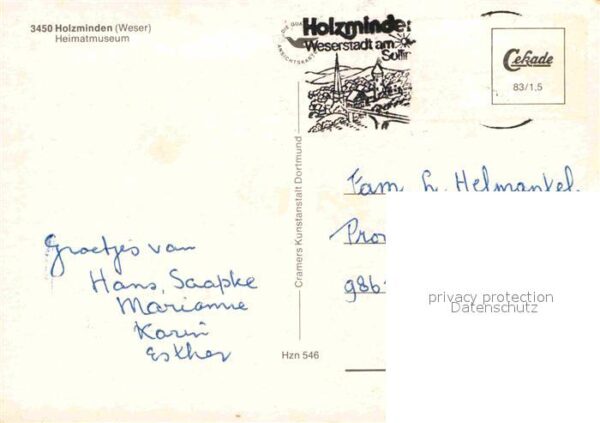 3450 Holzminden (Weser)
Heimatmuseum
Holzminden
Weserstadt am
Solling
Cekade
83/1,5
Cramers Kunstanstalt Dortmund
Fam. L. Helmantel
Pro
986
privacy protection
Datenschutz
Groetjes van
Hans, Saapke
Marianne
Karin
Esther
Hzn 546